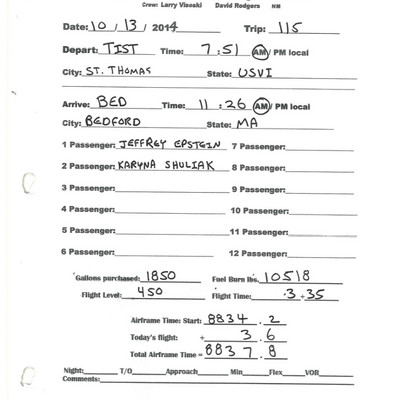 Crew: Larry Visoski David Rodgers NM
Date: 10 / 13 / 2014 Trip: 115
Depart: TIST Time: 7:51 AM/ PM local
City: ST. THOMAS State: USVI
Arrive: BED Time: 11:26 AM/ PM local
City: BEDFORD State: MA
1 Passenger: JEFFREY EPSTEIN 7 Passenger:
2 Passenger: KARYNA SHULIAK 8 Passenger:
3 Passenger: 9 Passenger:
4 Passenger: 10 Passenger:
5 Passenger: 11 Passenger:
6 Passenger: 12 Passenger:
Gallons purchased: 1850 Fuel Burn lbs. 10518
Flight Level: 450 Flight Time: 3 + 35
Airframe Time: Start: 8834 . 2
Today's flight: + 3 . 6
Total Airframe Time = 8837 . 8
Night: T/O Approach Min Flex VOR
Comments: